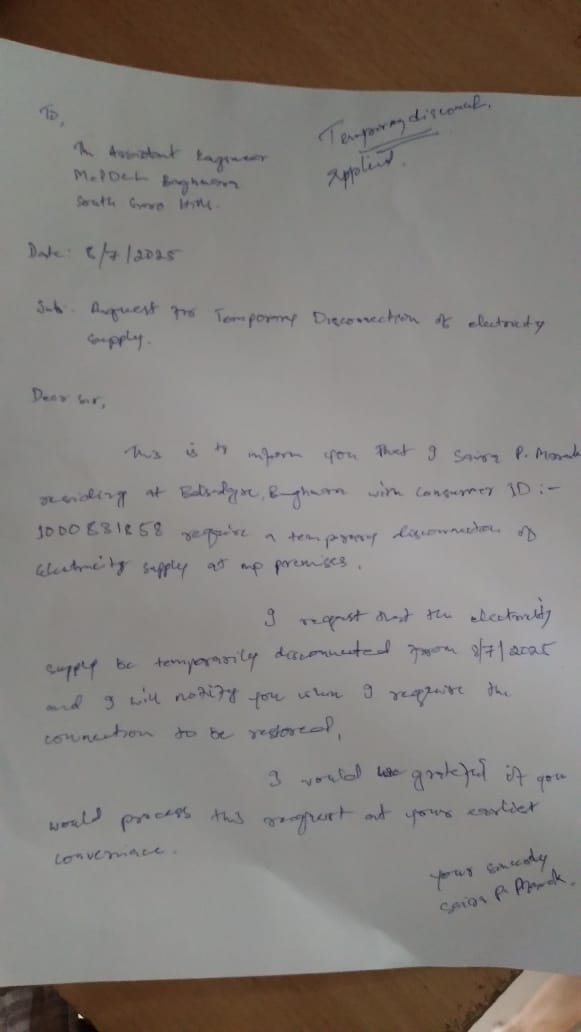 To,
Temporary disconnect.
Applied.
The Assistant Engineer
MePDCL Baghmara
South Garo Hills.
Date: 8/7/2025
Sub. Request for Temporary Disconnection of electricity
supply.
Dear Sir,
This is to inform you that I P. Marak
residing at Baghmara with Consumer ID :-
require a temporary disconnection of
Electricity supply at my premises.
I request that the electricity
supply be temporarily disconnected from 8/7/2025
and I will notify you when I require the
connection to be restored,
I would be grateful if you
would process this request at your earliest
convenience.
your sincerely
P. Marak.